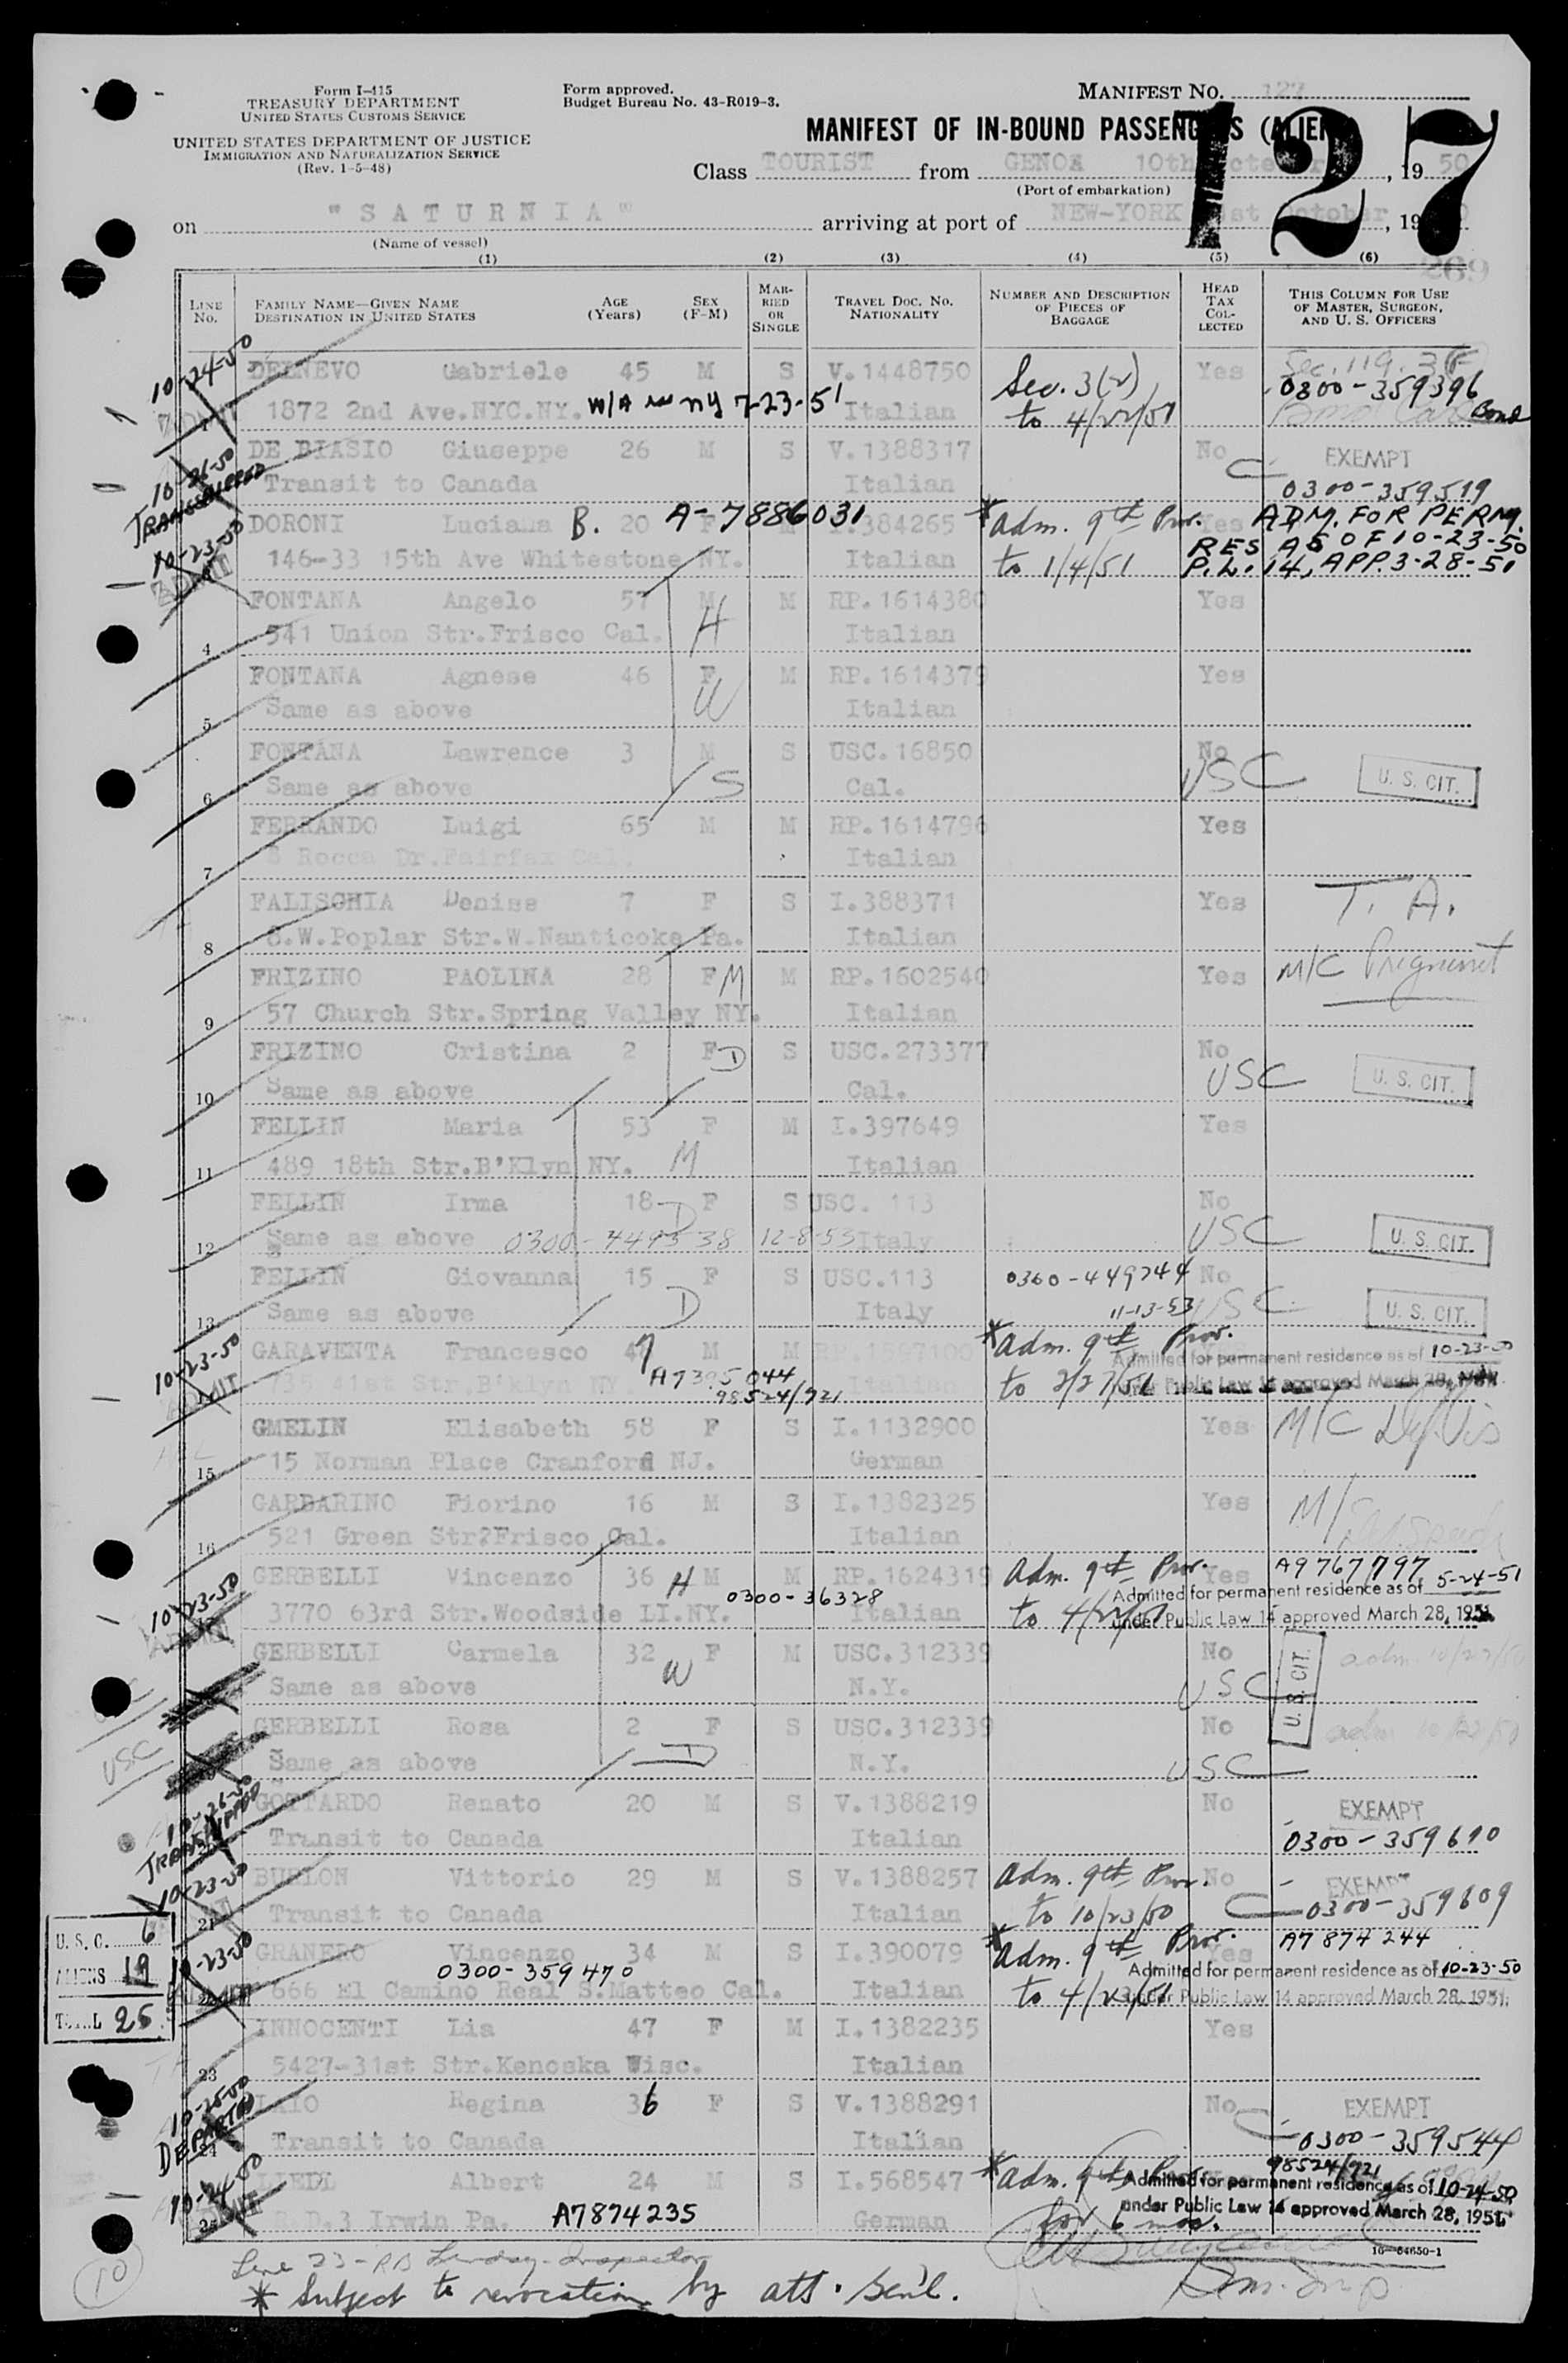 Form I-415
TREASURY DEPARTMENT
UNITED STATES CUSTOMS SERVICE
UNITED STATES DEPARTMENT OF JUSTICE
IMMIGRATION AND NATURALIZATION SERVICE
(Rev. 1-5-48)
Form approved.
Budget Bureau No. 43-R019-3.
MANIFEST NO. 127
127
MANIFEST OF IN-BOUND PASSENGERS (ALIEN)
Class TOURIST from GENOA 10th October, 19 50
(Port of embarkation)
on "SATURNIA" arriving at port of NEW-YORK October, 19
(Name of vessel)
269
(1) (2) (3) (4) (5) (6)
LINE No. FAMILY NAME—GIVEN NAME DESTINATION IN UNITED STATES AGE (Years) SEX (F-M) MARRIED OR SINGLE TRAVEL DOC. NO. NATIONALITY NUMBER AND DESCRIPTION OF PIECES OF BAGGAGE HEAD TAX COLLECTED THIS COLUMN FOR USE OF MASTER, SURGEON, AND U. S. OFFICERS
10-24-50 DELNEVO Gabriele 45 M S V.1448750 Sec. 3(2) Yes Sec. 119. 3(F) 0300-359396
1872 2nd Ave.NYC.NY. W/A NY 7-23-51 Italian to 4/22/51 Bond
10-26-50 DE BIASIO Giuseppe 26 M S V.1388317 No EXEMPT
TRANSSHIPPED Transit to Canada Italian 0300-359519
10-23-50 DORONI Luciana B. 20 F A-7886031 I.384265 * Adm. 9th Prov. Yes ADM. FOR PERM.
146-33 15th Ave Whitestone NY. Italian to 1/4/51 RES AS OF 10-23-50 P.L. 14, APP. 3-28-51
FONTANA Angelo 57 M M RP.1614380 Yes
4 541 Union Str.Frisco Cal. H Italian
FONTANA Agnese 46 F M RP.1614379 Yes
5 Same as above W Italian
FONTANA Lawrence 3 M S USC.16850 No
6 Same as above S Cal. USC U. S. CIT.
FERRANDO Luigi 65 M M RP.1614796 Yes
7 Rocca Dr.Fairfax Cal. Italian
FALISCHIA Denise 7 F S I.388371 Yes T. A.
8 8.W.Poplar Str.W.Nanticoke Pa. Italian
FRIZINO PAOLINA 28 F M M RP.1602540 Yes M/C Pregnant
9 57 Church Str.Spring Valley NY. Italian
FRIZINO Cristina 2 F D S USC.273377 No
10 Same as above Cal. USC U. S. CIT.
FELLIN Maria 53 F M I.397649 Yes
11 489 18th Str.B'Klyn NY. M Italian
FELLIN Irma 18 D F S USC. 113 No
12 Same as above 0300-449538 12-8-53 Italy USC U. S. CIT.
FELLIN Giovanna 15 F S USC.113 0300-449244 No
13 Same as above D Italy 11-13-53 USC U. S. CIT.
10-23-50 GARAVENTA Francesco 47 M M RP.1597100 * Adm. 9th Prov. Admitted for permanent residence as of 10-23-50
735 41st Str.B'klyn NY A7395044 98524/921 Italian to 2/27/51 under Public Law 14 approved March 28, 1951
GMELIN Elisabeth 58 F S I.1132900 Yes M/C Def. Vis
15 15 Norman Place Cranford NJ. German
GARBARINO Fiorino 16 M S I.1382325 Yes
16 521 Green Str?Frisco Cal. Italian
10-23-50 GERBELLI Vincenzo 36 H M M RP.1624319 Adm. 9th Prov. Yes A9767797 Admitted for permanent residence as of 5-24-51
3770 63rd Str.Woodside LI.NY. 0300-36328 Italian to 4/22/51 under Public Law 14 approved March 28, 1951.
GERBELLI Carmela 32 F M USC.312339 No adm. 10/23/50
Same as above W N.Y. USC U. S. CIT.
GERBELLI Rosa 2 F S USC.312339 No adm 10/23/50
USC Same as above D N.Y. USC
10-26-50 GOTTARDO Renato 20 M S V.1388219 No EXEMPT
TRANSSHIPPED Transit to Canada Italian 0300-359610
10-23-50 BURLON Vittorio 29 M S V.1388257 Adm. 9th Prov. No EXEMPT
21 Transit to Canada Italian to 10/23/50 0300-359609
10-23-50 GRANERO Vincenzo 34 M S I.390079 * Adm. 9th Prov. Yes A7874244
0300-359470 Admitted for permanent residence as of 10-23-50
22 666 El Camino Real S.Matteo Cal. Italian to 4/23/51 under Public Law 14 approved March 28, 1951.
U. S. C. 6
ALIENS 19
TOTAL 25
INNOCENTI Lia 47 F M I.1382235 Yes
23 5427-31st Str.Kenoska Wisc. Italian
10-25-50 LAIO Regina 36 F S V.1388291 No EXEMPT
DEPARTED 24 Transit to Canada Italian 0300-359544
10-24-50 LIEDL Albert 24 M S I.568547 * Adm. 9th Prov. 98524/921 Admitted for permanent residence as of 10-24-50
25 R.D.3 Irwin Pa. A7874235 German for 6 mos. under Public Law 14 approved March 28, 1951
16—64650-1
Line 23-RB Lindsay-Inspector
* Subject to revocation by att. Gen'l.
10